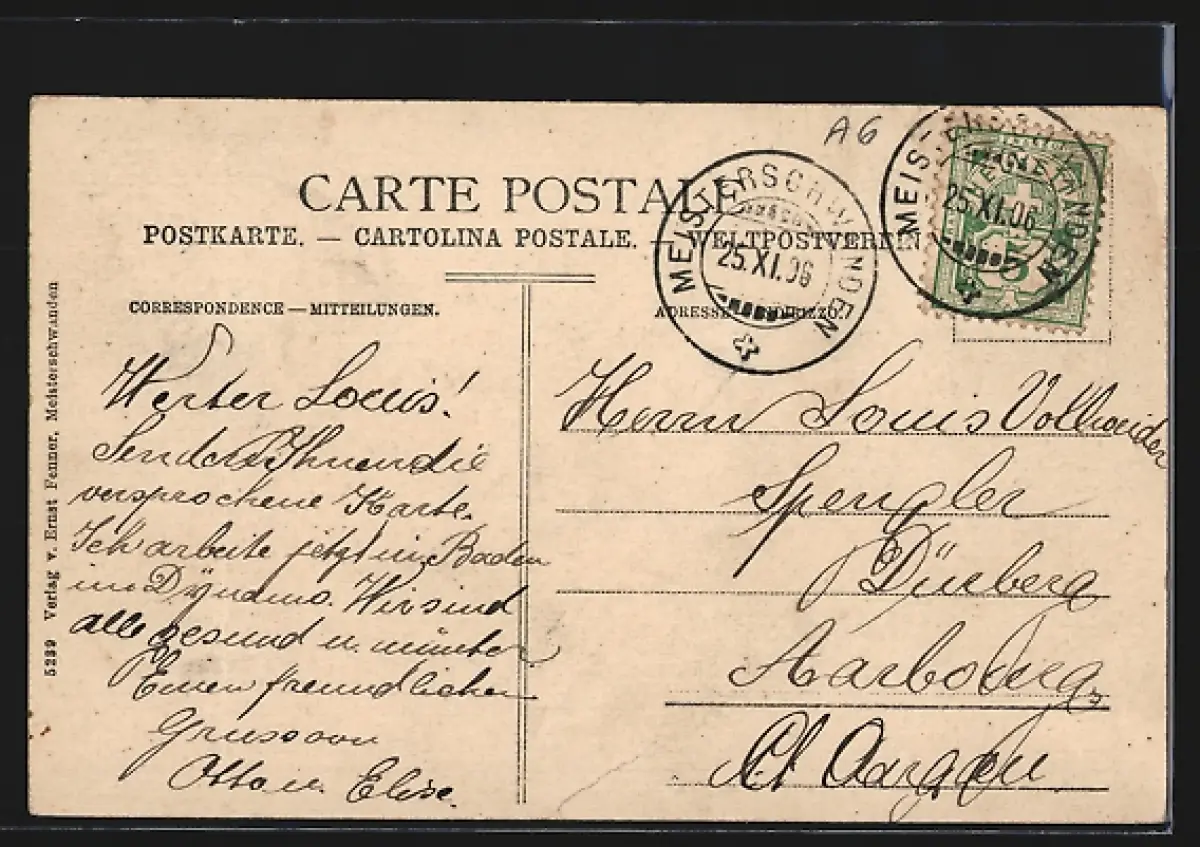 A6
CARTE POSTALE
POSTKARTE. — CARTOLINA POSTALE. — WELTPOSTVEREIN
MEISTERSCHWANDEN
25.XI.06
MEISTERSCHWANDEN
25.XI.06
5
CORRESPONDENCE — MITTEILUNGEN.
ADRESSE — INDIRIZZO.
5239 Verlag v. Ernst Fenner, Meisterschwanden
Werter Louis!
Sende Ihnen die
versprochene Karte.
Ich arbeite jetzt in Baden
im Dynamo. Wir sind
alle gesund u. munter
Einen freundlichen
Gruss von
Otto u. Elise.
Herrn Louis Vollweider
Spengler
Dürberg
Aarburg
Ct Aargau